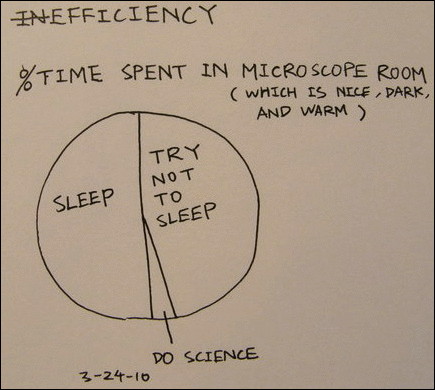 INEFFICIENCY
% TIME SPENT IN MICROSCOPE ROOM
(WHICH IS NICE, DARK,
AND WARM)
SLEEP
TRY
NOT
TO
SLEEP
DO SCIENCE
3-24-10